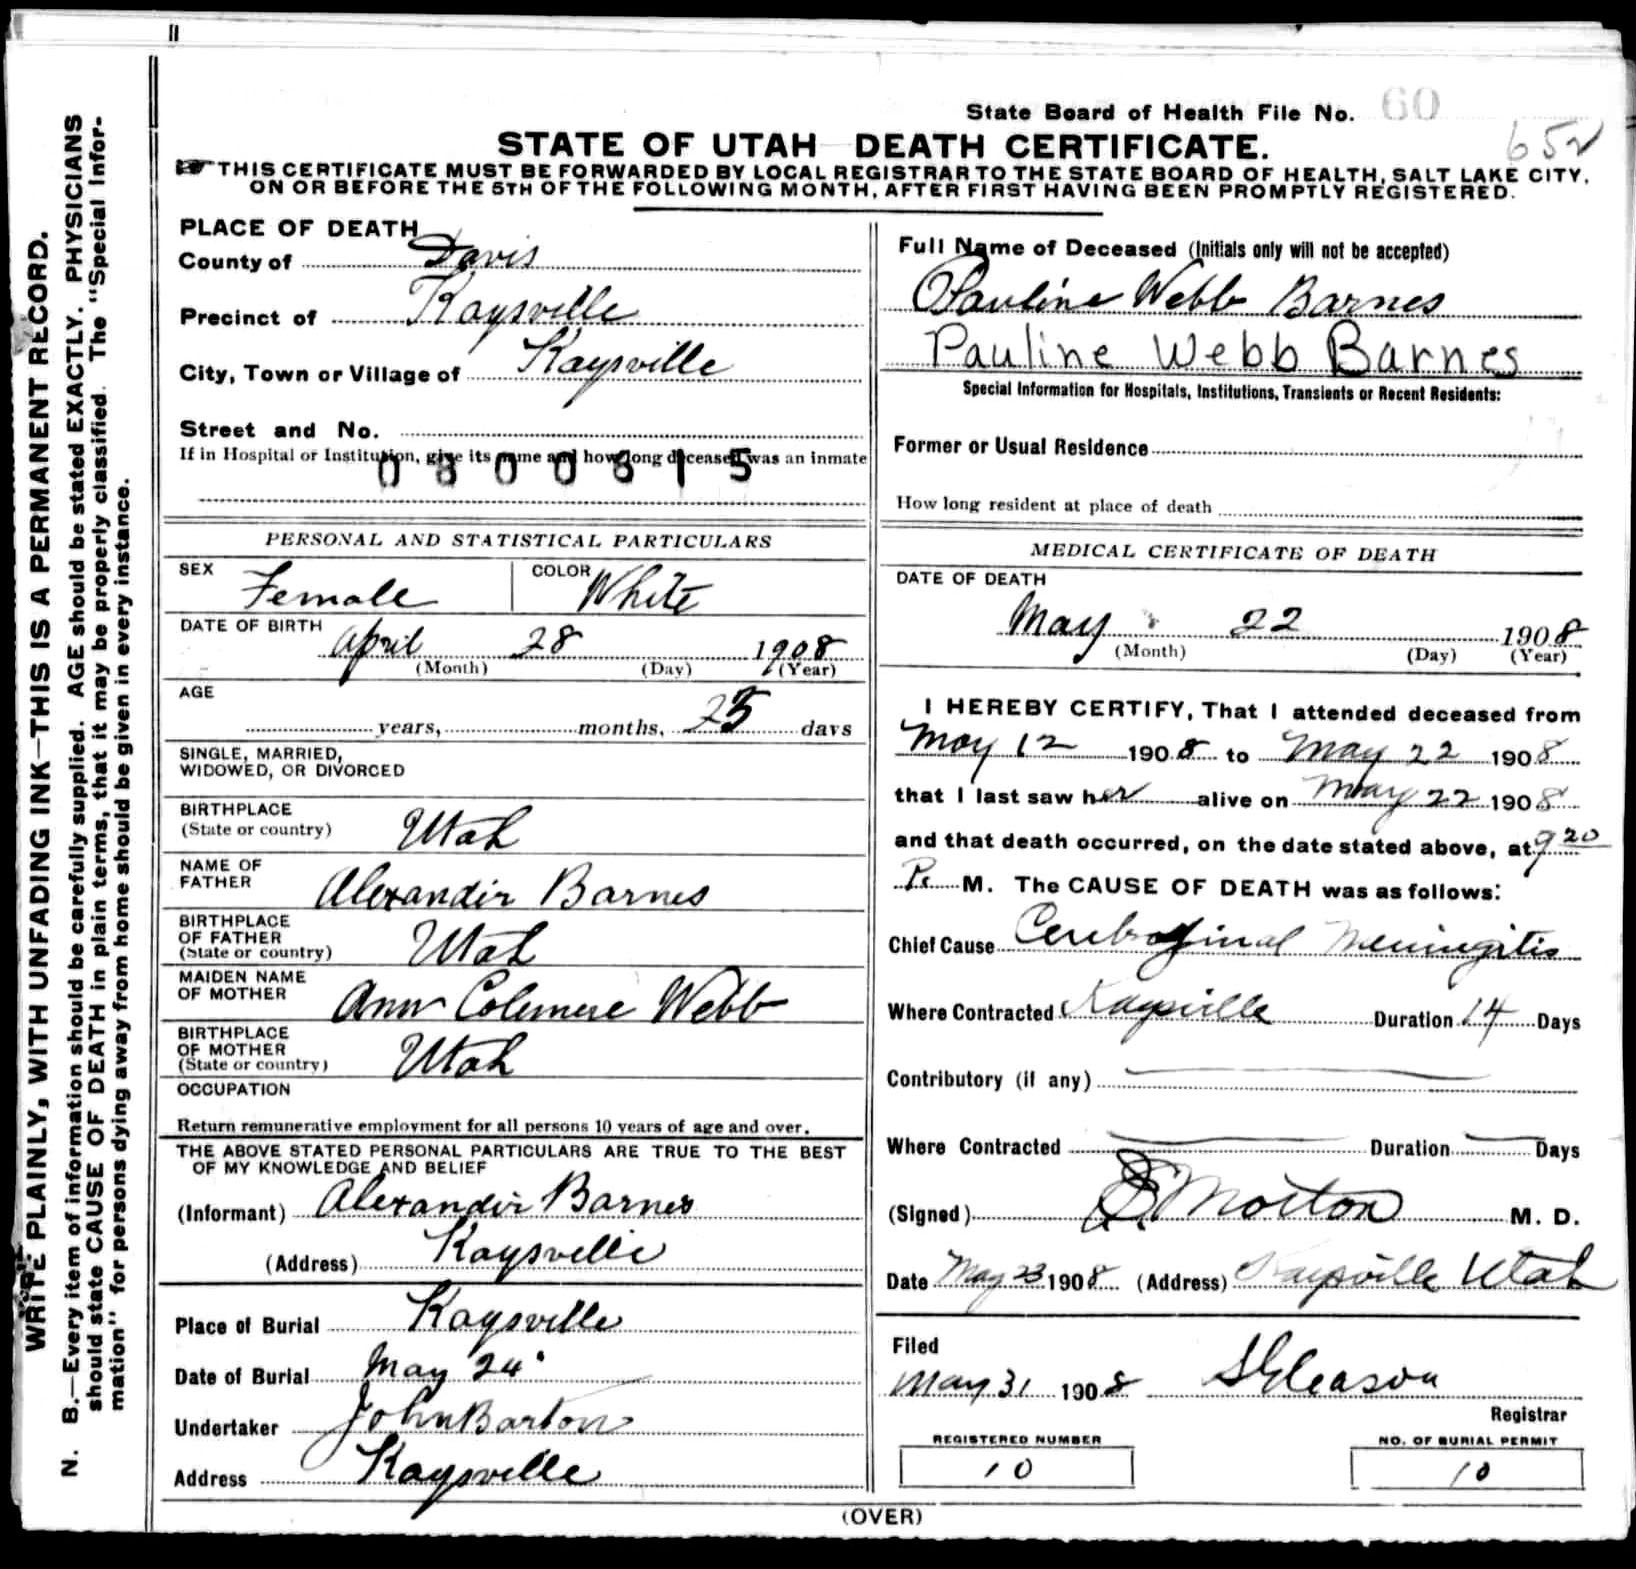 State Board of Health File No. 60
652
STATE OF UTAH DEATH CERTIFICATE.
THIS CERTIFICATE MUST BE FORWARDED BY LOCAL REGISTRAR TO THE STATE BOARD OF HEALTH, SALT LAKE CITY,
ON OR BEFORE THE 5TH OF THE FOLLOWING MONTH, AFTER FIRST HAVING BEEN PROMPTLY REGISTERED.
WRITE PLAINLY, WITH UNFADING INK—THIS IS A PERMANENT RECORD.
N. B.—Every item of information should be carefully supplied. AGE should be stated EXACTLY. PHYSICIANS
should state CAUSE OF DEATH in plain terms, that it may be properly classified. The "Special Infor-
mation" for persons dying away from home should be given in every instance.
PLACE OF DEATH
County of Davis
Precinct of Kaysville
City, Town or Village of Kaysville
Street and No.
If in Hospital or Institution, give its name and how long deceased was an inmate
PERSONAL AND STATISTICAL PARTICULARS
SEX Female COLOR White
DATE OF BIRTH April 28 1908
(Month) (Day) (Year)
AGE
years, months, 25 days
SINGLE, MARRIED,
WIDOWED, OR DIVORCED
BIRTHPLACE
(State or country) Utah
NAME OF
FATHER Alexander Barnes
BIRTHPLACE
OF FATHER
(State or country) Utah
MAIDEN NAME
OF MOTHER Ann Colemere Webb
BIRTHPLACE
OF MOTHER
(State or country) Utah
OCCUPATION
Return remunerative employment for all persons 10 years of age and over.
THE ABOVE STATED PERSONAL PARTICULARS ARE TRUE TO THE BEST
OF MY KNOWLEDGE AND BELIEF
(Informant) Alexander Barnes
(Address) Kaysville
Place of Burial Kaysville
Date of Burial May 24
Undertaker John Barton
Address Kaysville
Full Name of Deceased (Initials only will not be accepted)
Pauline Webb Barnes
Pauline Webb Barnes
Special Information for Hospitals, Institutions, Transients or Recent Residents:
Former or Usual Residence
How long resident at place of death
MEDICAL CERTIFICATE OF DEATH
DATE OF DEATH
May 22 1908
(Month) (Day) (Year)
I HEREBY CERTIFY, That I attended deceased from
May 12 1908 to May 22 1908
that I last saw her alive on May 22 1908
and that death occurred, on the date stated above, at 9 20
P. M. The CAUSE OF DEATH was as follows:
Chief Cause Cerebrospinal Meningitis
Where Contracted Kaysville Duration 14 Days
Contributory (if any)
Where Contracted Duration Days
(Signed) Morton M. D.
Date May 23 1908 (Address) Kaysville Utah
Filed
May 31 1908 S Gleason
Registrar
REGISTERED NUMBER
10
NO. OF BURIAL PERMIT
10
(OVER)